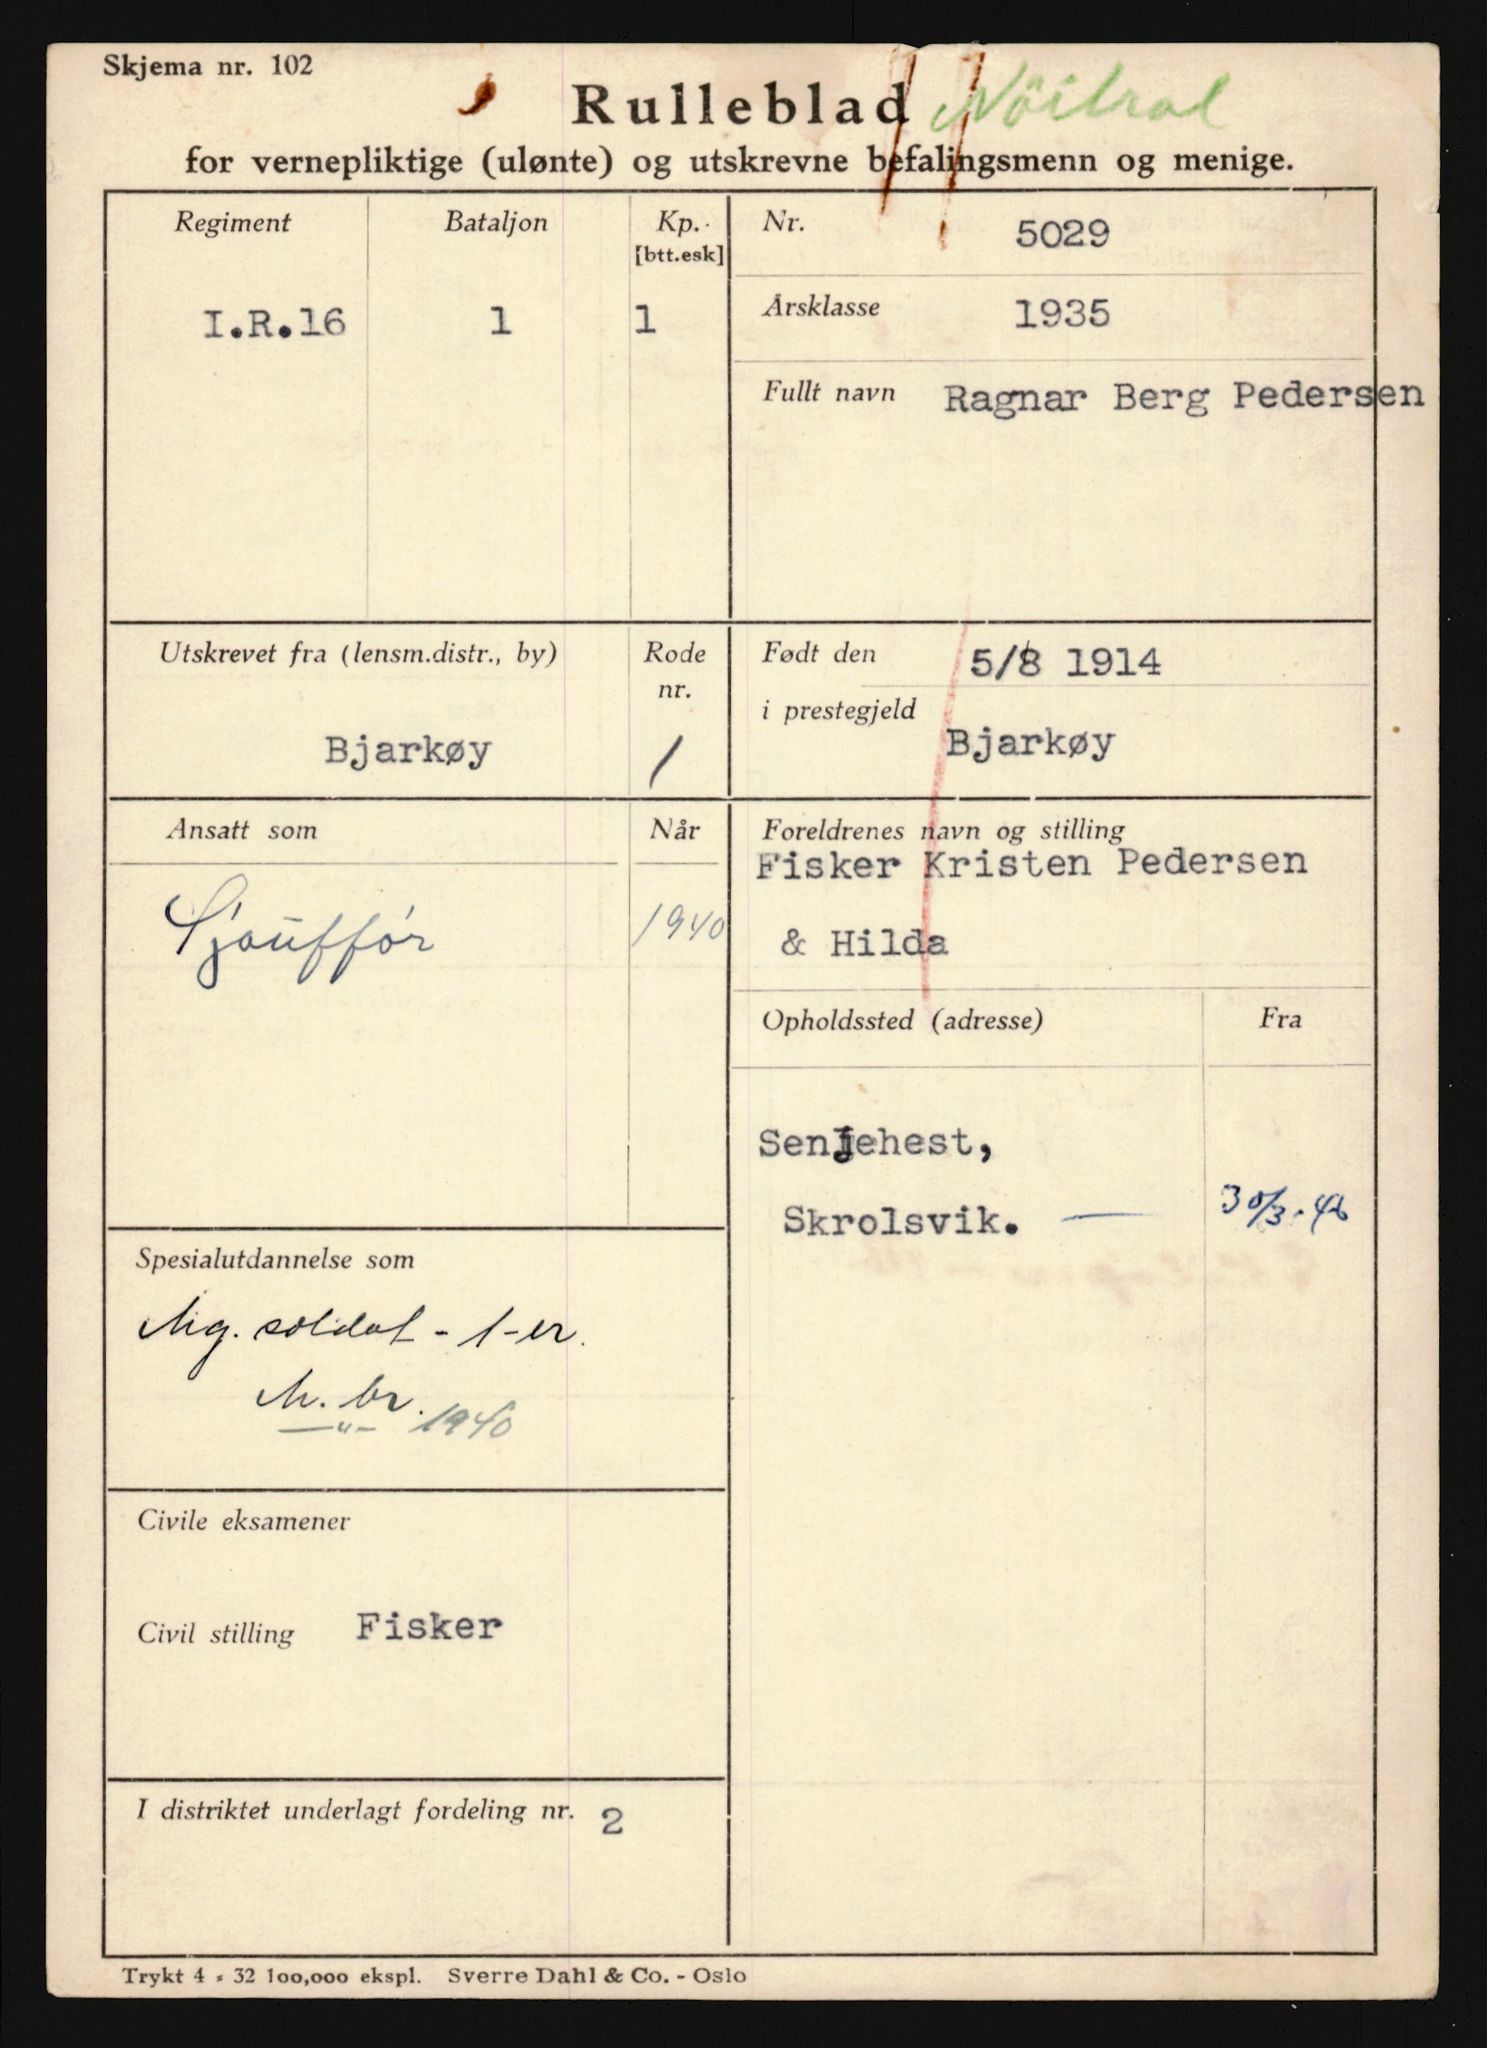 Skjema nr. 102
Rulleblad Nöitral
for vernepliktige (ulønte) og utskrevne befalingsmenn og menige.
Regiment
Bataljon
Kp.
[btt.esk]
I.R.16
1
1
Nr.
5029
Årsklasse
1935
Fullt navn
Ragnar Berg Pedersen
Utskrevet fra (lensm.distr., by)
Rode
nr.
Bjarkøy
1
Født den
5/8 1914
i prestegjeld
Bjarkøy
Ansatt som
Når
Sjauffør
1940
Foreldrenes navn og stilling
Fisker Kristen Pedersen
& Hilda
Opholdssted (adresse)
Fra
Senjehest,
Skrolsvik. —
30/3.46
Spesialutdannelse som
Mg. soldat - 1-er.
M. br.
—"— 1940
Civile eksamener
Civil stilling
Fisker
I distriktet underlagt fordeling nr. 2
Trykt 4 - 32 100,000 ekspl. Sverre Dahl & Co. - Oslo